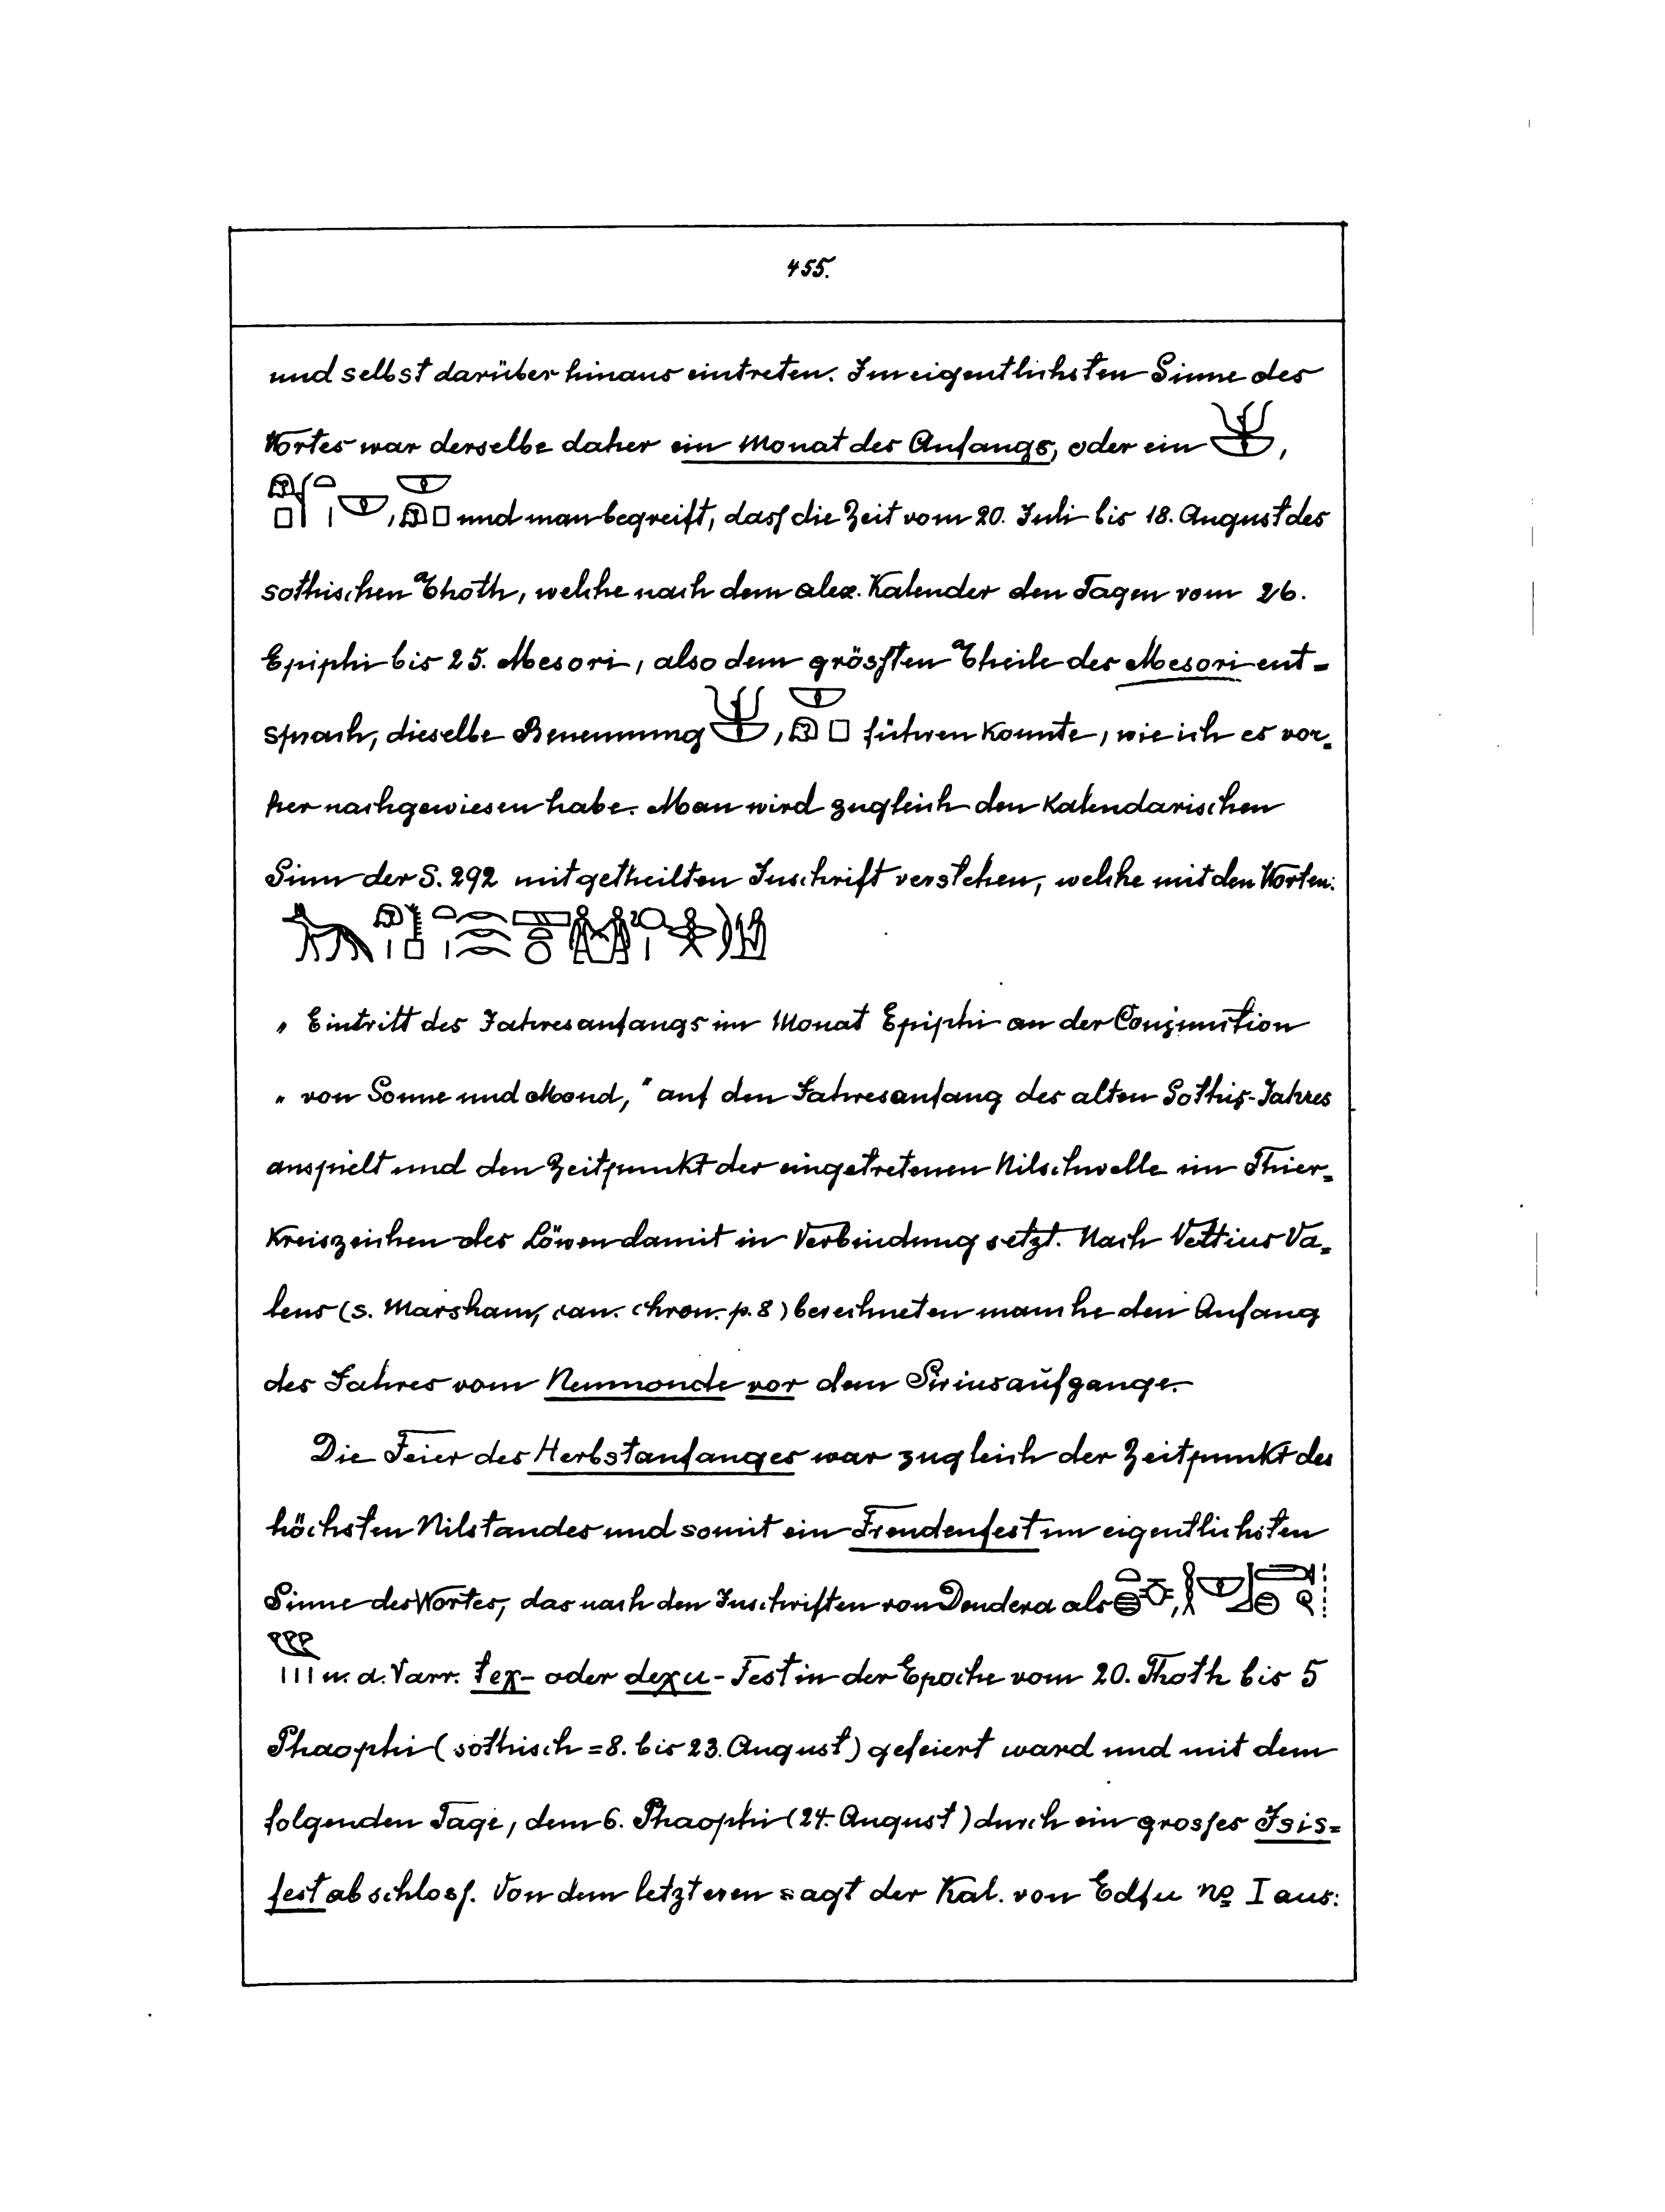 455.
und selbst darüber hinaus eintreten. Im eigentlichsten Sinne des
Wortes war derselbe daher ein Monat des Anfangs, oder ein ,
, und man begreift, dass die Zeit vom 20. Juli bis 18. August des
sothischen Thoth, welche nach dem alex. Kalender den Tagen vom 26.
Epiphi bis 25. Mesori, also dem grössten Theile des Mesori ent-
sprach, dieselbe Benennung , führen konnte, wie ich es vor-
her nachgewiesen habe. Man wird zugleich den Kalendarischen
Sinn der S. 292 mitgetheilten Inschrift verstehen, welche mit den Worten:
„ Eintritt des Jahresanfangs im Monat Epiphi an der Conjunction
„ von Sonne und Mond, " auf den Jahresanfang des alten Sothis-Jahres
anspielt und den Zeitpunkt der eingetretenen Nilschwelle im Thier-
Kreiszeichen des Löwen damit in Verbindung setzt. Nach Vettius Va-
lens (s. Marsham, can. chron. p. 8) berechneten manche den Anfang
des Jahres vom Neumonde vor dem Siriusaufgange.
Die Feier des Herbstanfanges war zugleich der Zeitpunkt des
höchsten Nilstandes und somit ein Freudenfest im eigentlichsten
Sinne des Wortes, das nach den Inschriften von Dendera als ,
u. d. Varr. teχ- oder deχu-Fest in der Epoche vom 20. Thoth bis 5
Phaophi (sothisch = 8. bis 23. August) gefeiert ward und mit dem
folgenden Tage, dem 6. Phaophi (24. August) durch ein grosses Isis-
fest abschloss. Von dem letzteren sagt der Kal. von Edfu no I aus: